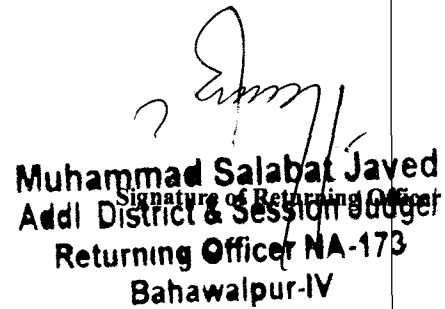 Muhammad Salabat Javed
Signature of Returning Officer
Addl District & Session Judge
Returning Officer NA-173
Bahawalpur-IV